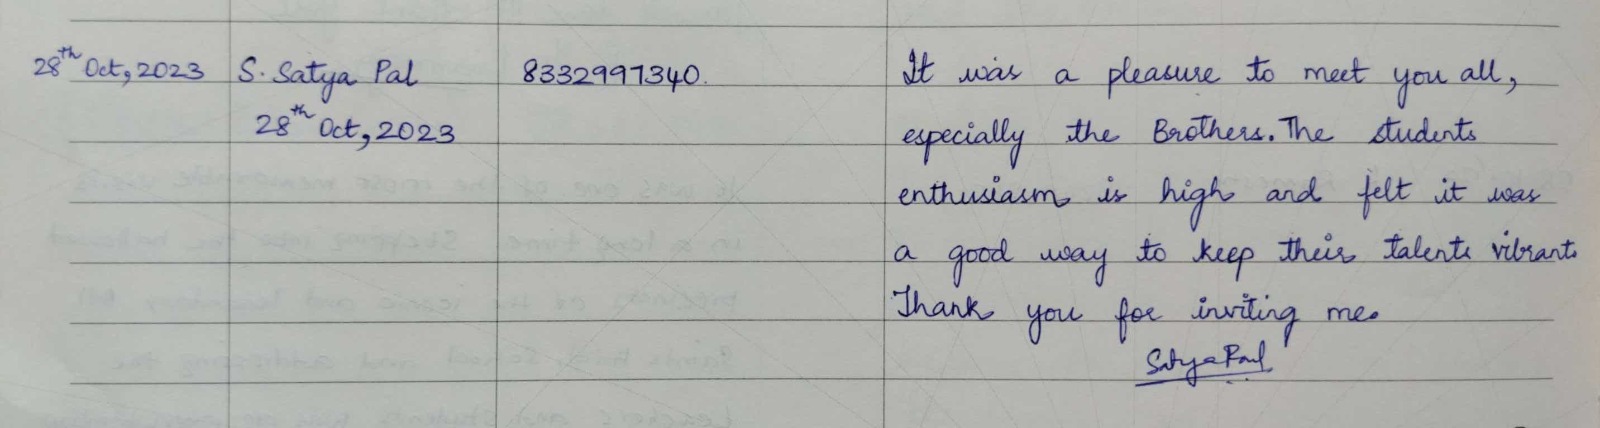 28th Oct, 2023 S. Satya Pal 8332997340. It was a pleasure to meet you all,
28th Oct, 2023 especially the Brothers. The students
enthusiasm is high and felt it was
a good way to keep their talents vibrant.
Thank you for inviting me.
Satya Paul